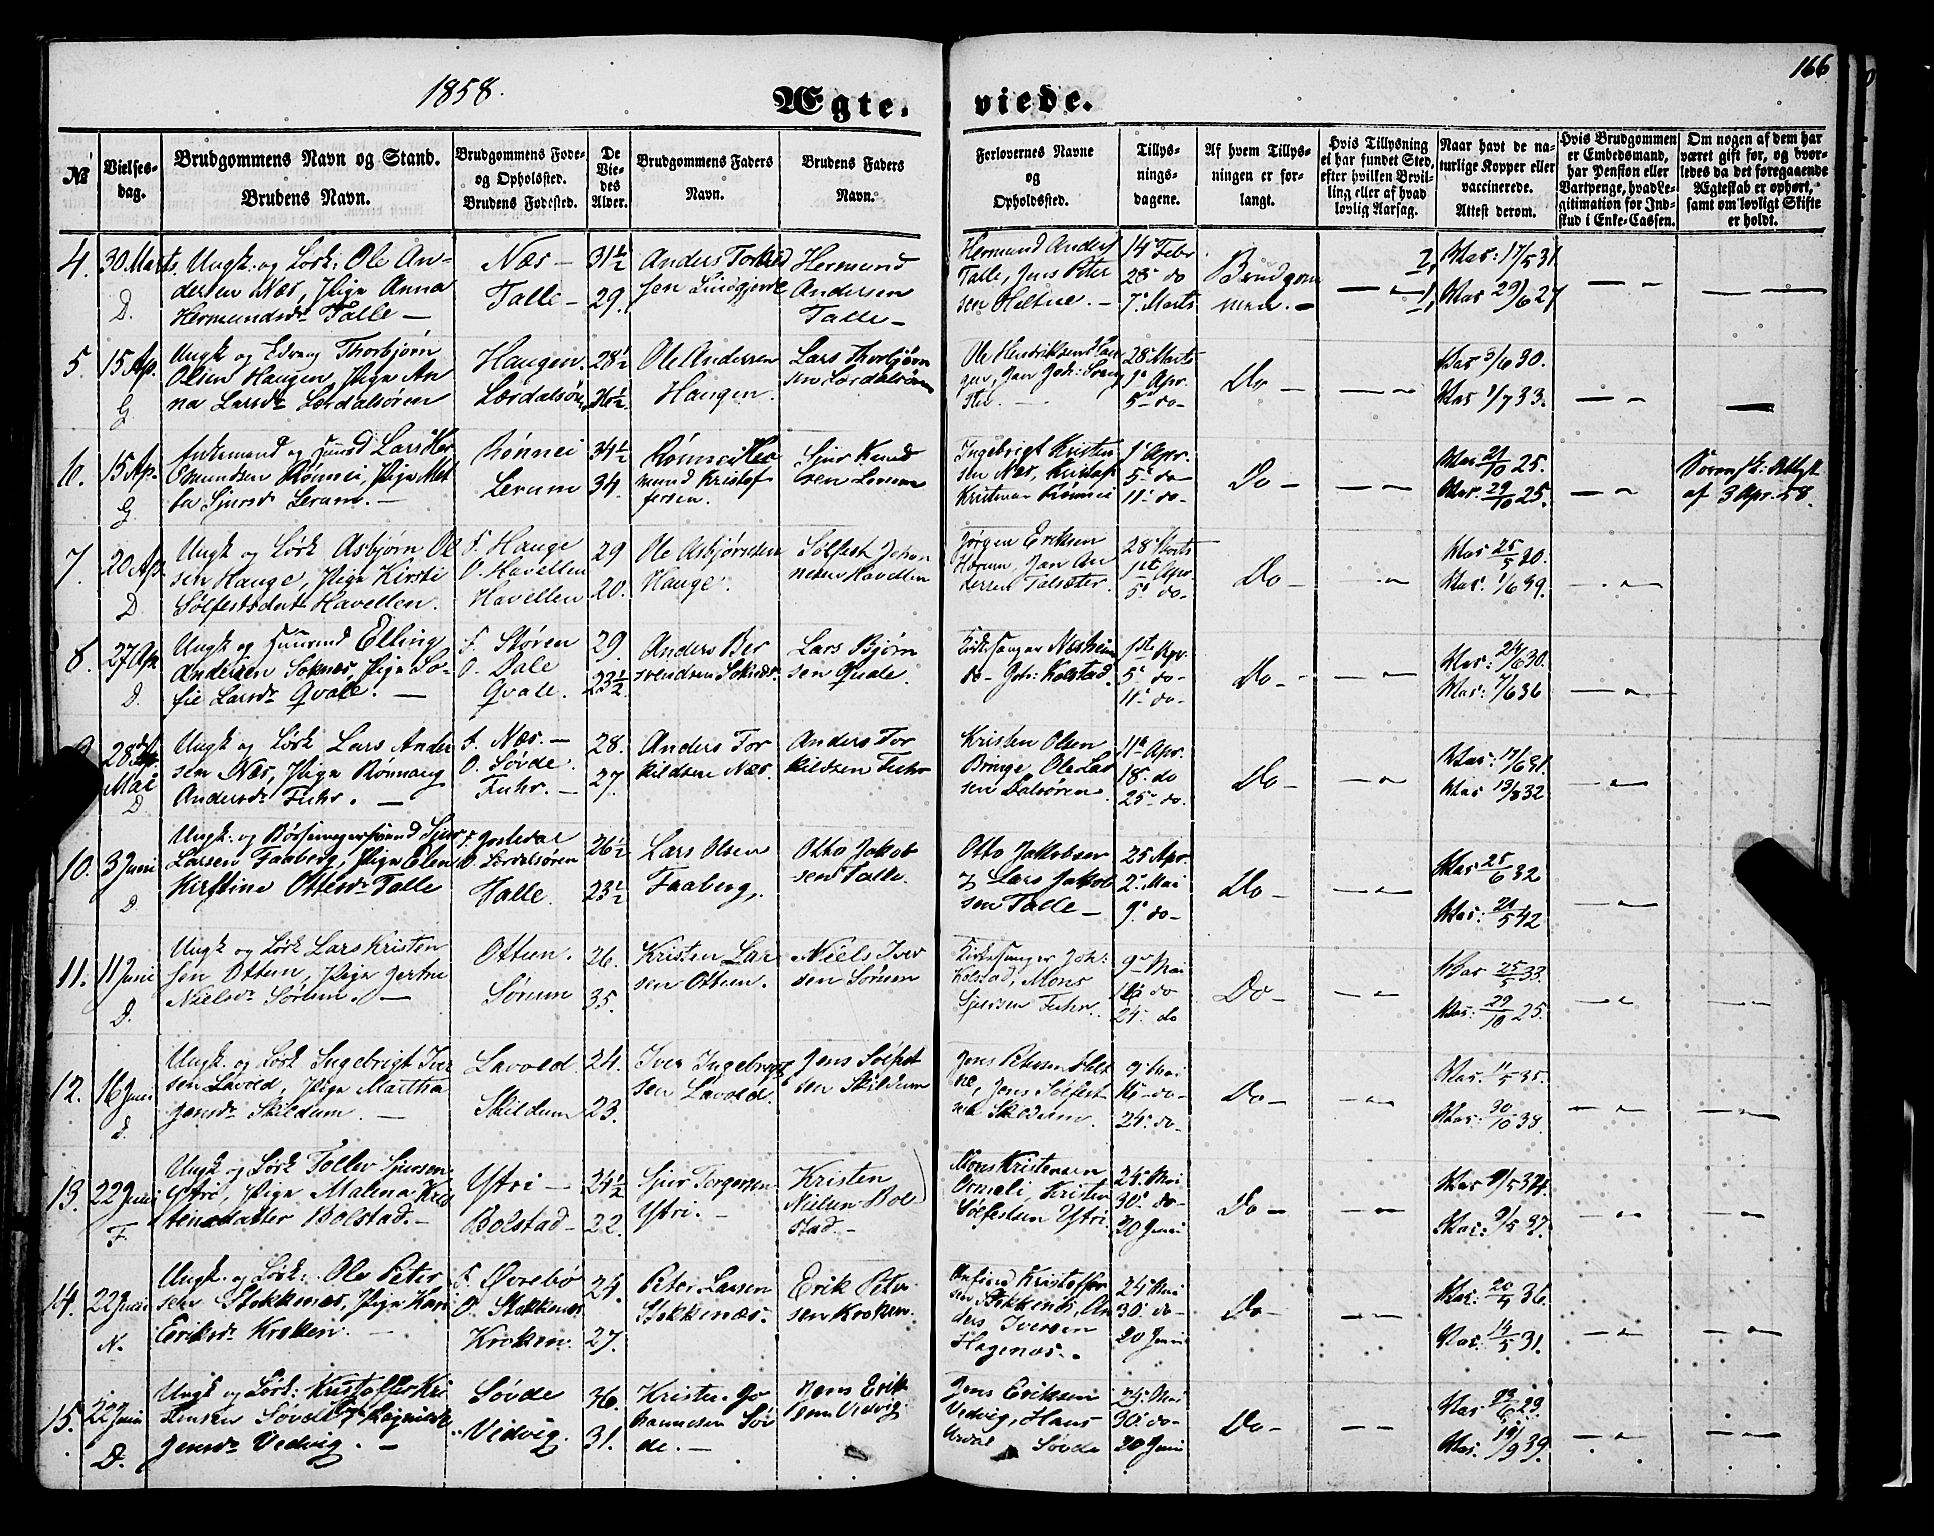 1858.
Ægte. viede.
166
No
Vielses-
dag.
Brudgommens Navn og Stand.
Brudens Navn.
Brudgommens Føde-
og Opholdsted.
Brudens Fødested.
De
Vie-
des
Alder.
Brudgommens Faders
Navn.
Brudens Faders
Navn.
Forlovernes Navne
og
Opholdsted.
Tillys-
nings-
dagene.
Af hvem Tillys-
ningen er for-
langt.
Hvis Tillysning
ei har fundet Sted,
efter hvilken Bevil-
ling eller af hvad
lovlig Aarsag.
Naar havt de na-
turlige Kopper eller
vaccinerede.
Attest derom.
Hvis Brudgommen
er Embedsmand,
har Pension eller
Vartpenge, hvad Le-
gitimation for Ind-
skud i Enke-Cassen.
Om nogen af dem har
været gift før, og hvor-
ledes da det foregaaende
Ægteskab er ophørt,
samt om lovligt Skifte
er holdt.
4.
30 Marts
D.
Ungk. og Lørk: Ole An-
dersen Næs, Pige Anna
Hermundsdr Talle —
Næs —
Talle —
31½
29.
Anders Torkild
sen
Hermund
Andersen
Talle —
Hermund Anders
Talle, Jens Peter
sen Heltne. —
14de Febr
28. do
7. Marts
Brudgom
men. —
Vac: 17/5 31
Vac 29/6 27
5.
15 Ap.
G.
Ungk og Thorbjørn
Olsen Haugen, Pige An
na Larsdr Lærdalsøren
Haugen.
Lærdalsøren
28½
Ole Andersen
Haugen.
Lars Thorbjørn
sen Lærdalsøren
Ole Hendriksen Hau
gen, Jan Joh:
28. Marts
1. Apr.
5. do
Do —
Vac 3/6 30.
Vac 1/7 33.
6.
15 Ap.
G.
Enkemand og Huusmd Lars Her
mundsen Rønnei, Pige Met
ta Sjursdr Lerum. —
Rønnei
Lerum
34½
34.
Rønnei Her
mund Kristof
fersen.
Sjur Knud
sen Lerum
Ingebrigt Kristen
sen Næs, Kristofer
Kristensen Rønnei
1. Apr.
5. do
11. do
Do —
Vac 21/10 25.
Vac. 29/10 25.
af 3 Apr. 58.
7.
20 Ap.
D
Ungk og Lørk Asbjørn Ol
sen Hauge, Pige Kirsti
Sølfestsdatr Havellen.
F. Hauge
O. Havellen
Havellen
29
20.
Ole Asbjørnsen
Hauge.
Sølfest Johan
nesen Havellen
Jørgen Eriksen
Jan An
dersen Talsæter.
28 Marts
1ste Apr.
5. do
Do —
Vac 25/5 30.
Vac. 1/6 39.
8.
27 Ap
D.
Ungk og Huusmd Elling
Andersen Soknæs, Pige So-
fie Larsdr Qvale. —
F. Støren
O. Dale
Qvale.
29.
23½
Anders Ber
svendsen Soknæs.
Lars Bjørn
sen Qvale.
Kirkesanger Næsheim
do — Joh: Kolstad
1ste Apr.
5. do
11. do
Do —
Vac: 24/6 30.
Vac: 7/6 36
28de
Mai
D.
Ungk og Lørk Lars Ander
sen Næs, Pige Rønnaug
Andersdr Fuhr. —
F. Næs. —
O. Søvde.
Fuhr. —
28.
27.
Anders Tor
kildsen Næs.
Anders Tor
kildsen Fuhr
Kristen Olsen
Bringe, Ole Lar
sen Dalsøren.
11. Apr.
18. do
25. do.
Do —
Vac: 17/6 31.
Vac 13/8 32.
10.
3 Juni
D.
Ungk. og Bøssemagersvend Sjur
Larsen Faaberg, Pige Elen
Kirstine Ottosdr Talle
F. Jostedal
O. Lærdalsøren
Talle.
26½
23½
Lars Olsen
Faaberg.
Otto Jakob
sen Talle.
Otto Jakobsen
& Lars Jakob
sen Talle —
25 Apr.
2. Mai
9. do
Do —
Vac 25/6 32
Vac: 21/5 42
11.
11 Juni
D.
Ungk og Lørk Lars Kristen
sen Ottum, Pige Jertru
Nielsdr Sørum. —
Ottum.
Sørum
26.
35.
Kristen Lar
sen Ottum.
Niels Iver
sen Sørum
Kirkesanger Joh:
Kolstad, Mons
Sjursen Fuhr.
9. Mai
16 do
24. do
Do —
Vac 25/5 33.
Vac: 29/10 25.
12.
16 Juni
D.
Ungk og Lørk Ingebrigt Iver
sen Lavold, Pige Martha
Jensdr Skildum. —
Lavold.
Skildum
24.
23.
Iver Ingebrigt
sen Lavold.
Jens Sølfest
sen Skildum
Jens Petersen Helt
ne, Jens Sølfest
sen Skildum.
9. Mai
16. do
24. do
Do —
Vac. 11/5 35.
Vac: 30/10 38.
13.
22 Juni
F.
Ungk og Lørk Tollev Sjursen
Ystri, Pige Malena Kris
tensdatter Bolstad. —
Ystri —
Bolstad —
24½
22.
Sjur Torgersen
Ystri. —
Kristen
Nielsen Bol
stad. —
Mons Kristensen
Ormeli, Kristen
Sølfestsen Ystri
24. Mai
30. do
20 Juni
Do —
Vac: 9/5 37.
14.
22 Juni
N.
Ungk. og Lørk: Ole Peter
sen Stokkenæs, Pige Kari
Eriksdr Kroken. —
F. Øvrebø
O. Stokkenæs
Kroken.
24.
27.
Peter Larsen
Stokkenæs.
Erik Peter
sen Kroken.
Anfind Kristoffer
sen Stokkenæs, An
ders Iversen
Hagenæs. —
24. Mai
30. do
20 Juni
Do —
Vac: 20/4 36.
Vac: 14/5 31.
15.
22 Juni
D.
Ungk og Lørk: Kristoffer Kri
stensen Søvde, Pige
Jensdr Vedvig. —
Søvde
Vedvig.
36.
31.
Kristen Jo
hannesen Søv
de. —
Jens Erik
sen Vedvig.
Jens Eriksen
Vedvig, Hans
Søvde
24. Mai
30. do
20 Juni
Do —
Vac 23/6 29.
Vac. 19/9 39.